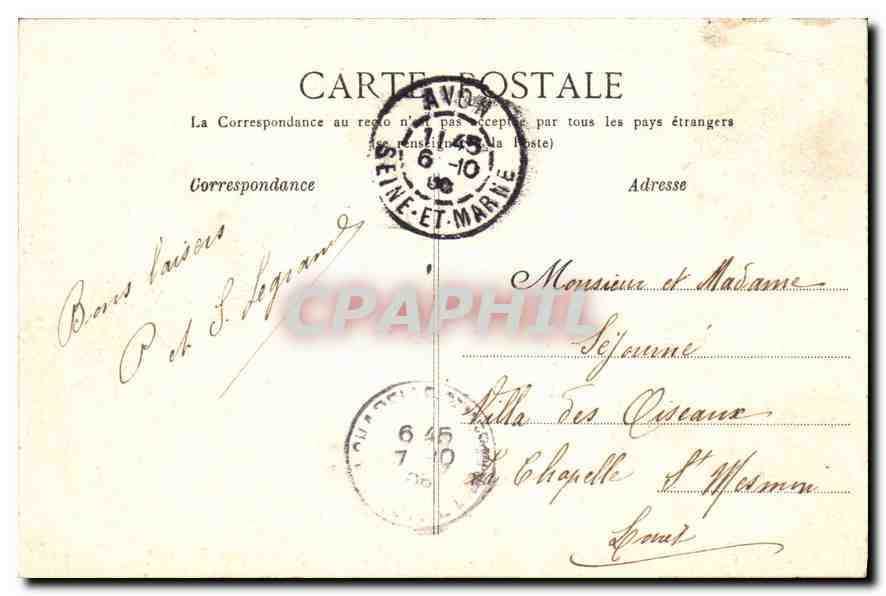 CARTE POSTALE
La Correspondance au recto n'est pas acceptée par tous les pays étrangers
(se renseigner à la Poste)
Correspondance
Adresse
AVON
11 45
6 -10
SEINE-ET-MARNE
Bons baisers
P et S. Legrand
CPAPHIL
Monsieur et Madame
Séjourné
Villa des Oiseaux
La Chapelle St Mesmin
Loiret
6 45
7 10